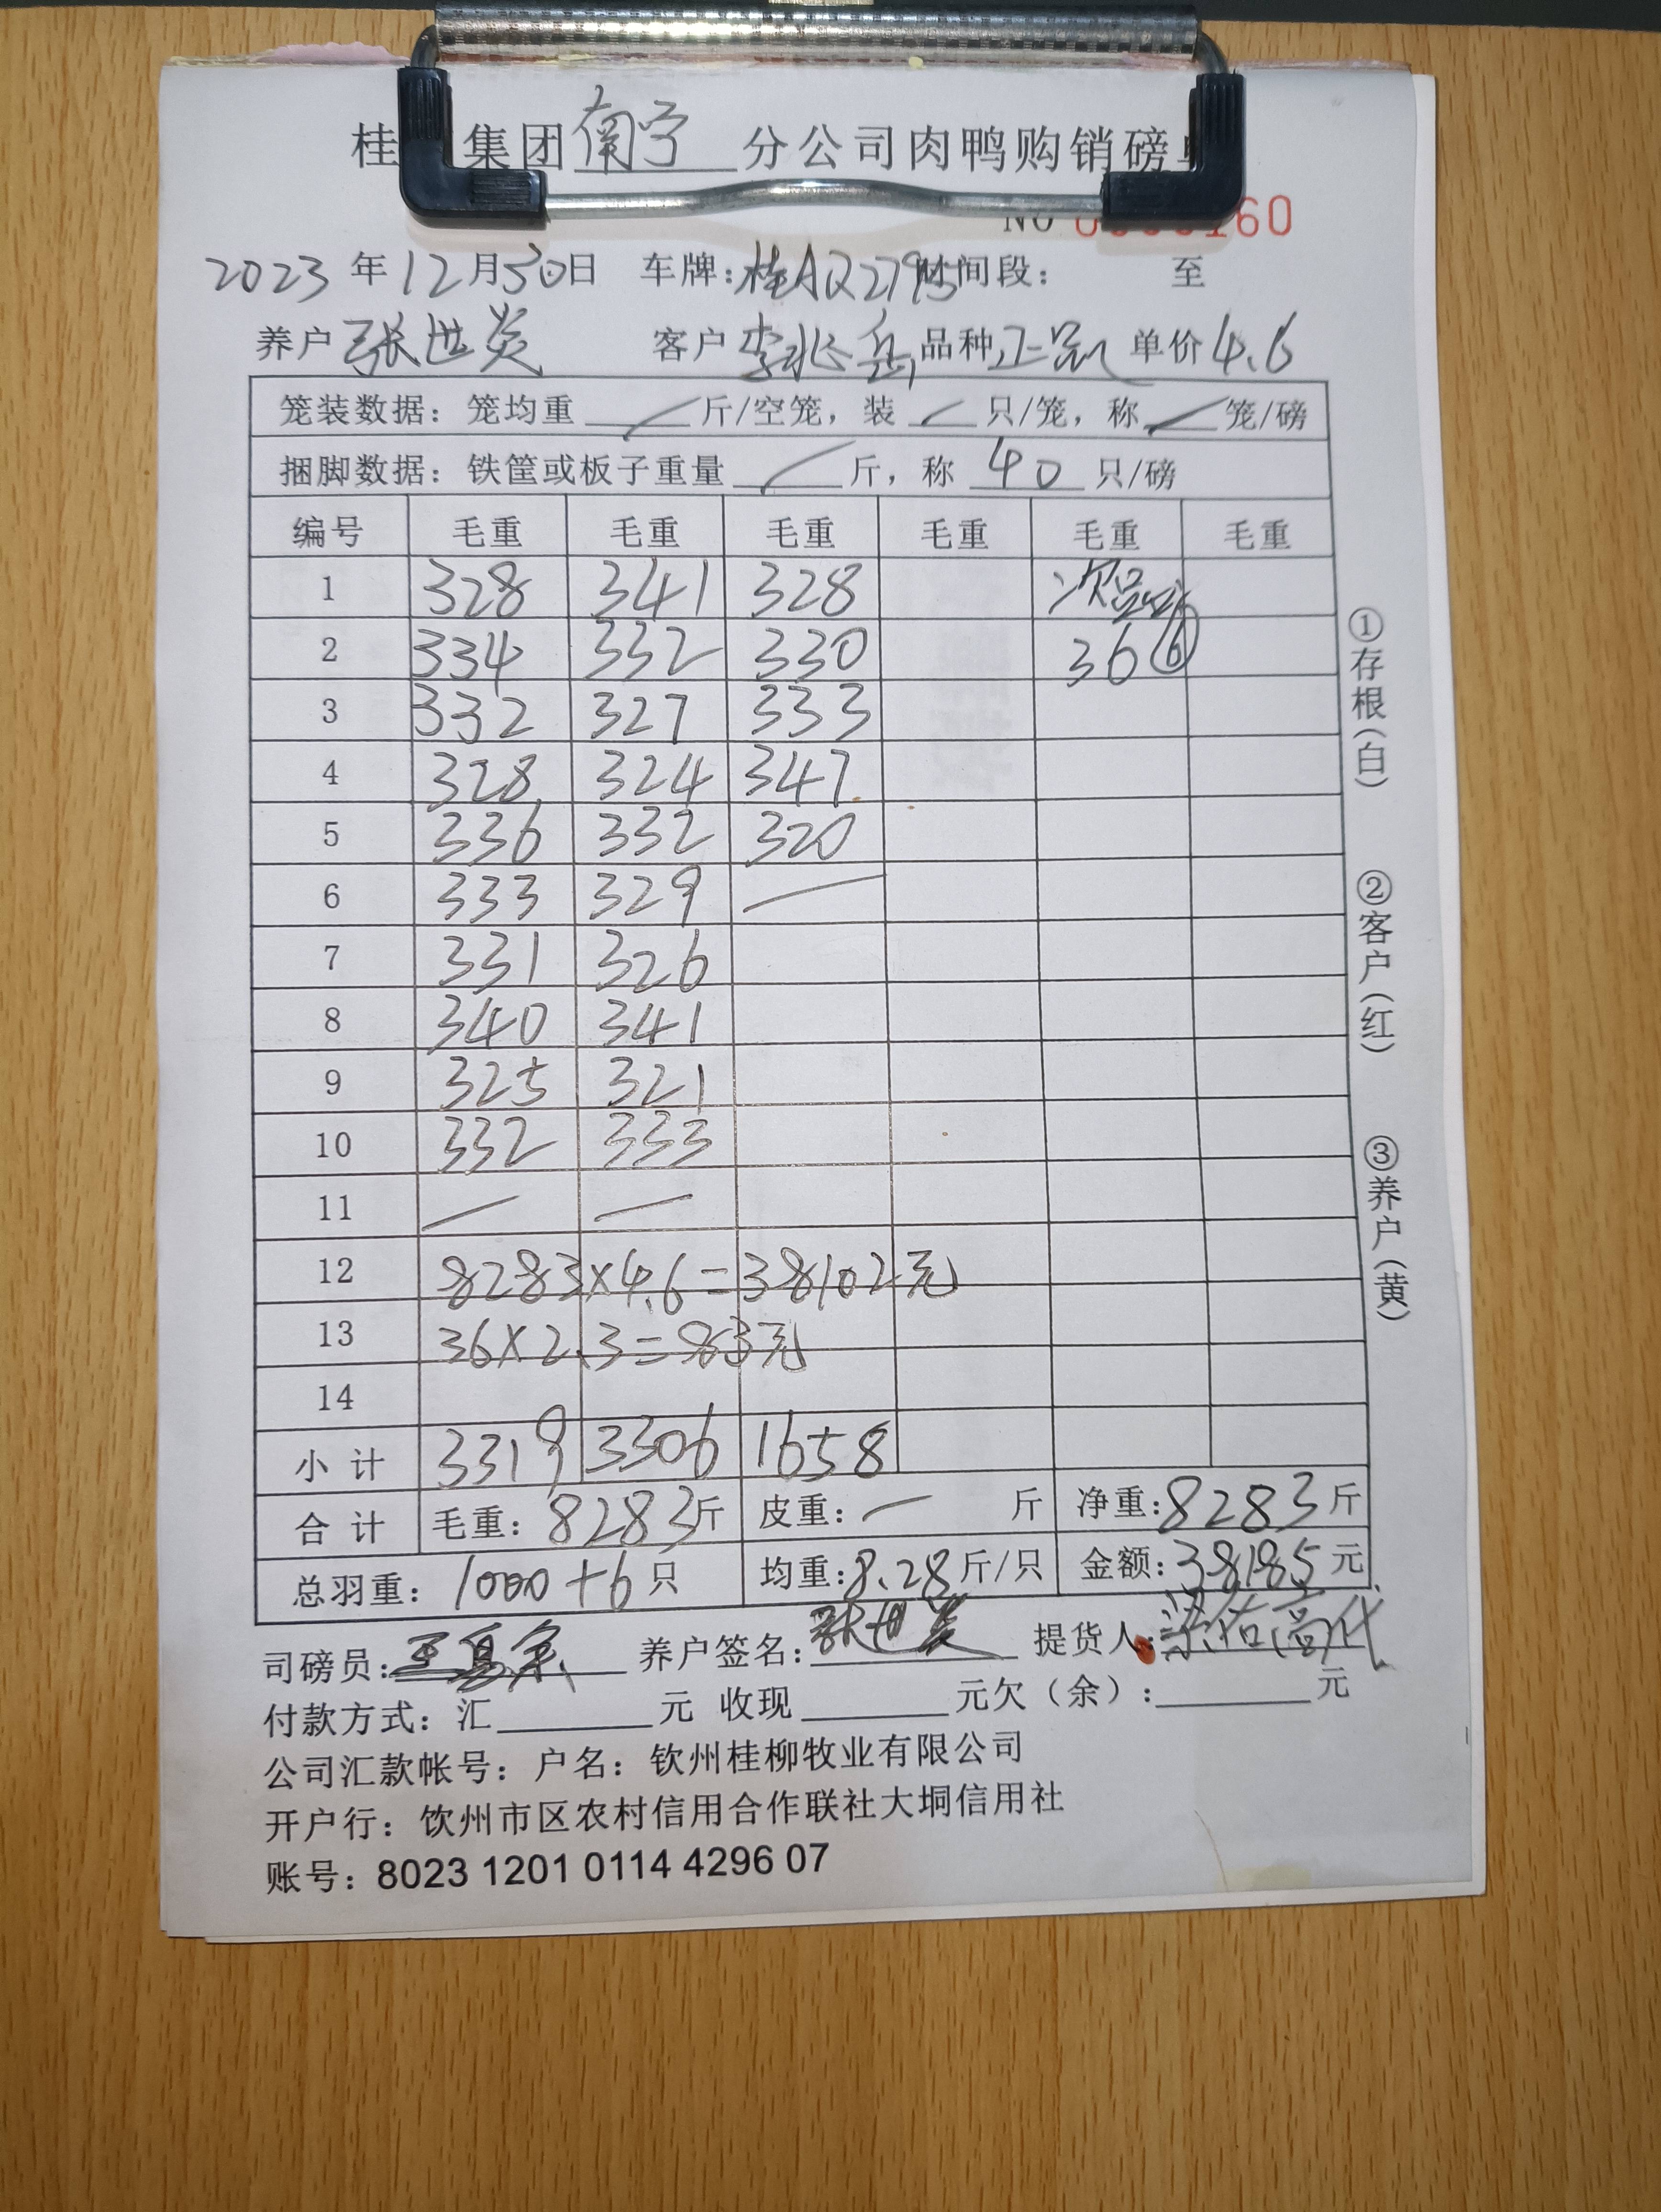 桂 集团南宁分公司肉鸭购销磅
NO 60
2023年12月30日 车牌:桂AQ2795 时间段: 至
养户张世英 客户李兆岳 品种正品 单价4.6
笼装数据:笼均重 / 斤/空笼,装 / 只/笼,称 / 笼/磅
捆脚数据:铁筐或板子重量 / 斤,称 40 只/磅
编号 毛重 毛重 毛重 毛重 毛重 毛重
1 328 341 328 次品
2 334 332 330 36 ⑥
3 332 327 333
4 328 324 347
5 336 332 320
6 333 329 —
7 331 326
8 340 341
9 325 321
10 332 333
11 — —
12 8283×4.6=38102元
13 36×2.3=83元
14
小计 3319 3306 1658
合计 毛重:8283斤 皮重:— 斤 净重:8283斤
总羽重:1000+6只 均重:8.28斤/只 金额:38185元
司磅员: 养户签名:张世英 提货人:
付款方式:汇 元 收现 元欠(余): 元
公司汇款帐号:户名:钦州桂柳牧业有限公司
开户行:钦州市区农村信用合作联社大垌信用社
账号:8023 1201 0114 4296 07
①存根(白)
②客户(红)
③养户(黄)